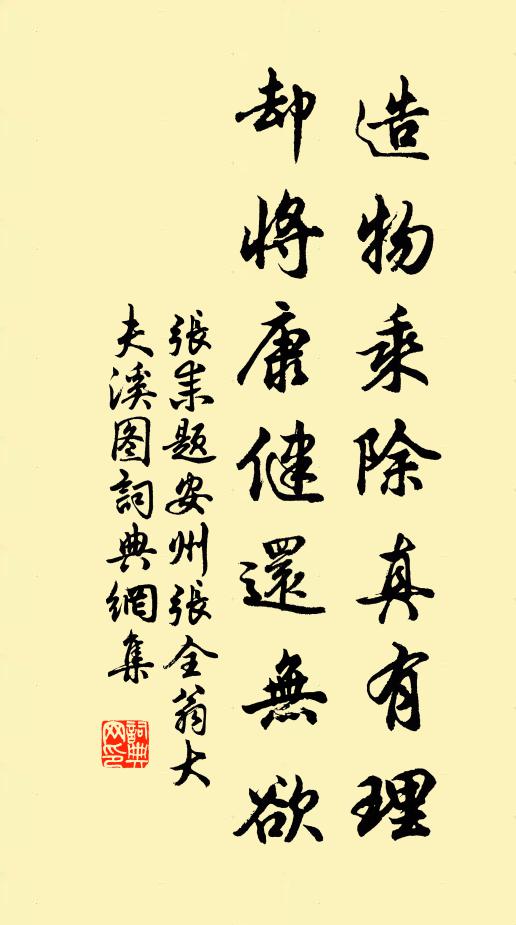 造物乘除真有理
却将康健還無欲
張耒題安州張全翁大
夫溪图詞典網集
詞典网印